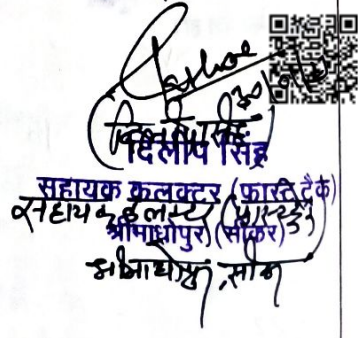 (दिलीप सिंह)
दिलीप सिंह
सहायक कलक्टर (फास्ट ट्रैक)
सहायक कलक्टर (फास्ट ट्रैक)
श्रीमाधोपुर (सीकर)
श्रीमाधोपुर, सीकर